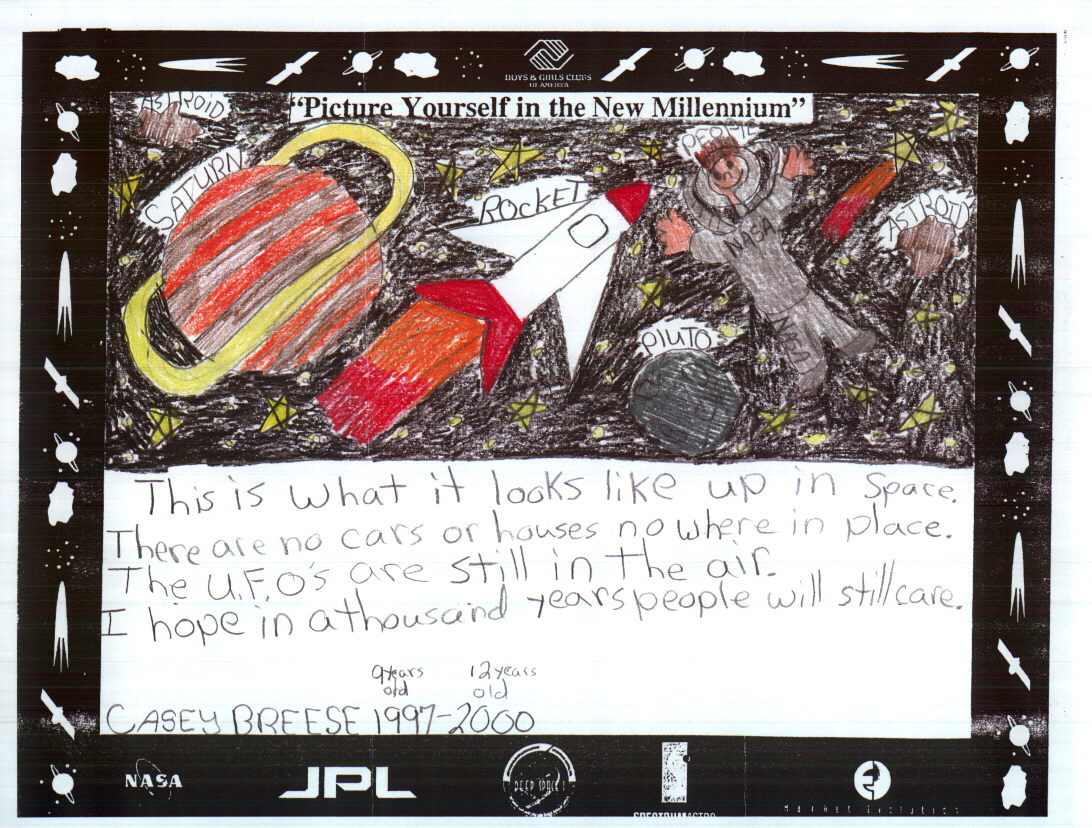 BOYS & GIRLS CLUBS
OF AMERICA
"Picture Yourself in the New Millennium"
ASTROID
SATURN
ROCKET
PEOPLE
NASA
ASTROID
NASA
PlUTO
This is what it looks like up in space.
There are no cars or houses no where in place.
The U.F.O's are still in the air.
I hope in a thousand years people will still care.
9 years old
12 years old
CASEY BREESE 1997-2000
NASA
JPL
DEEP SPACE 1
SPECTRUMASTRO
Market Evolution